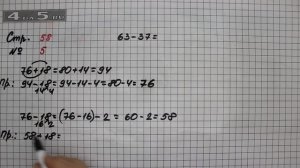 4на5.ru
Стр. 58
63-37=
№ 5.
76+18=80+14=94
Пр.: 94-18=94-14-4=80-4=76
14 4
76-18=(76-16)-2=60-2=58
16 2
Пр.: 58+18=